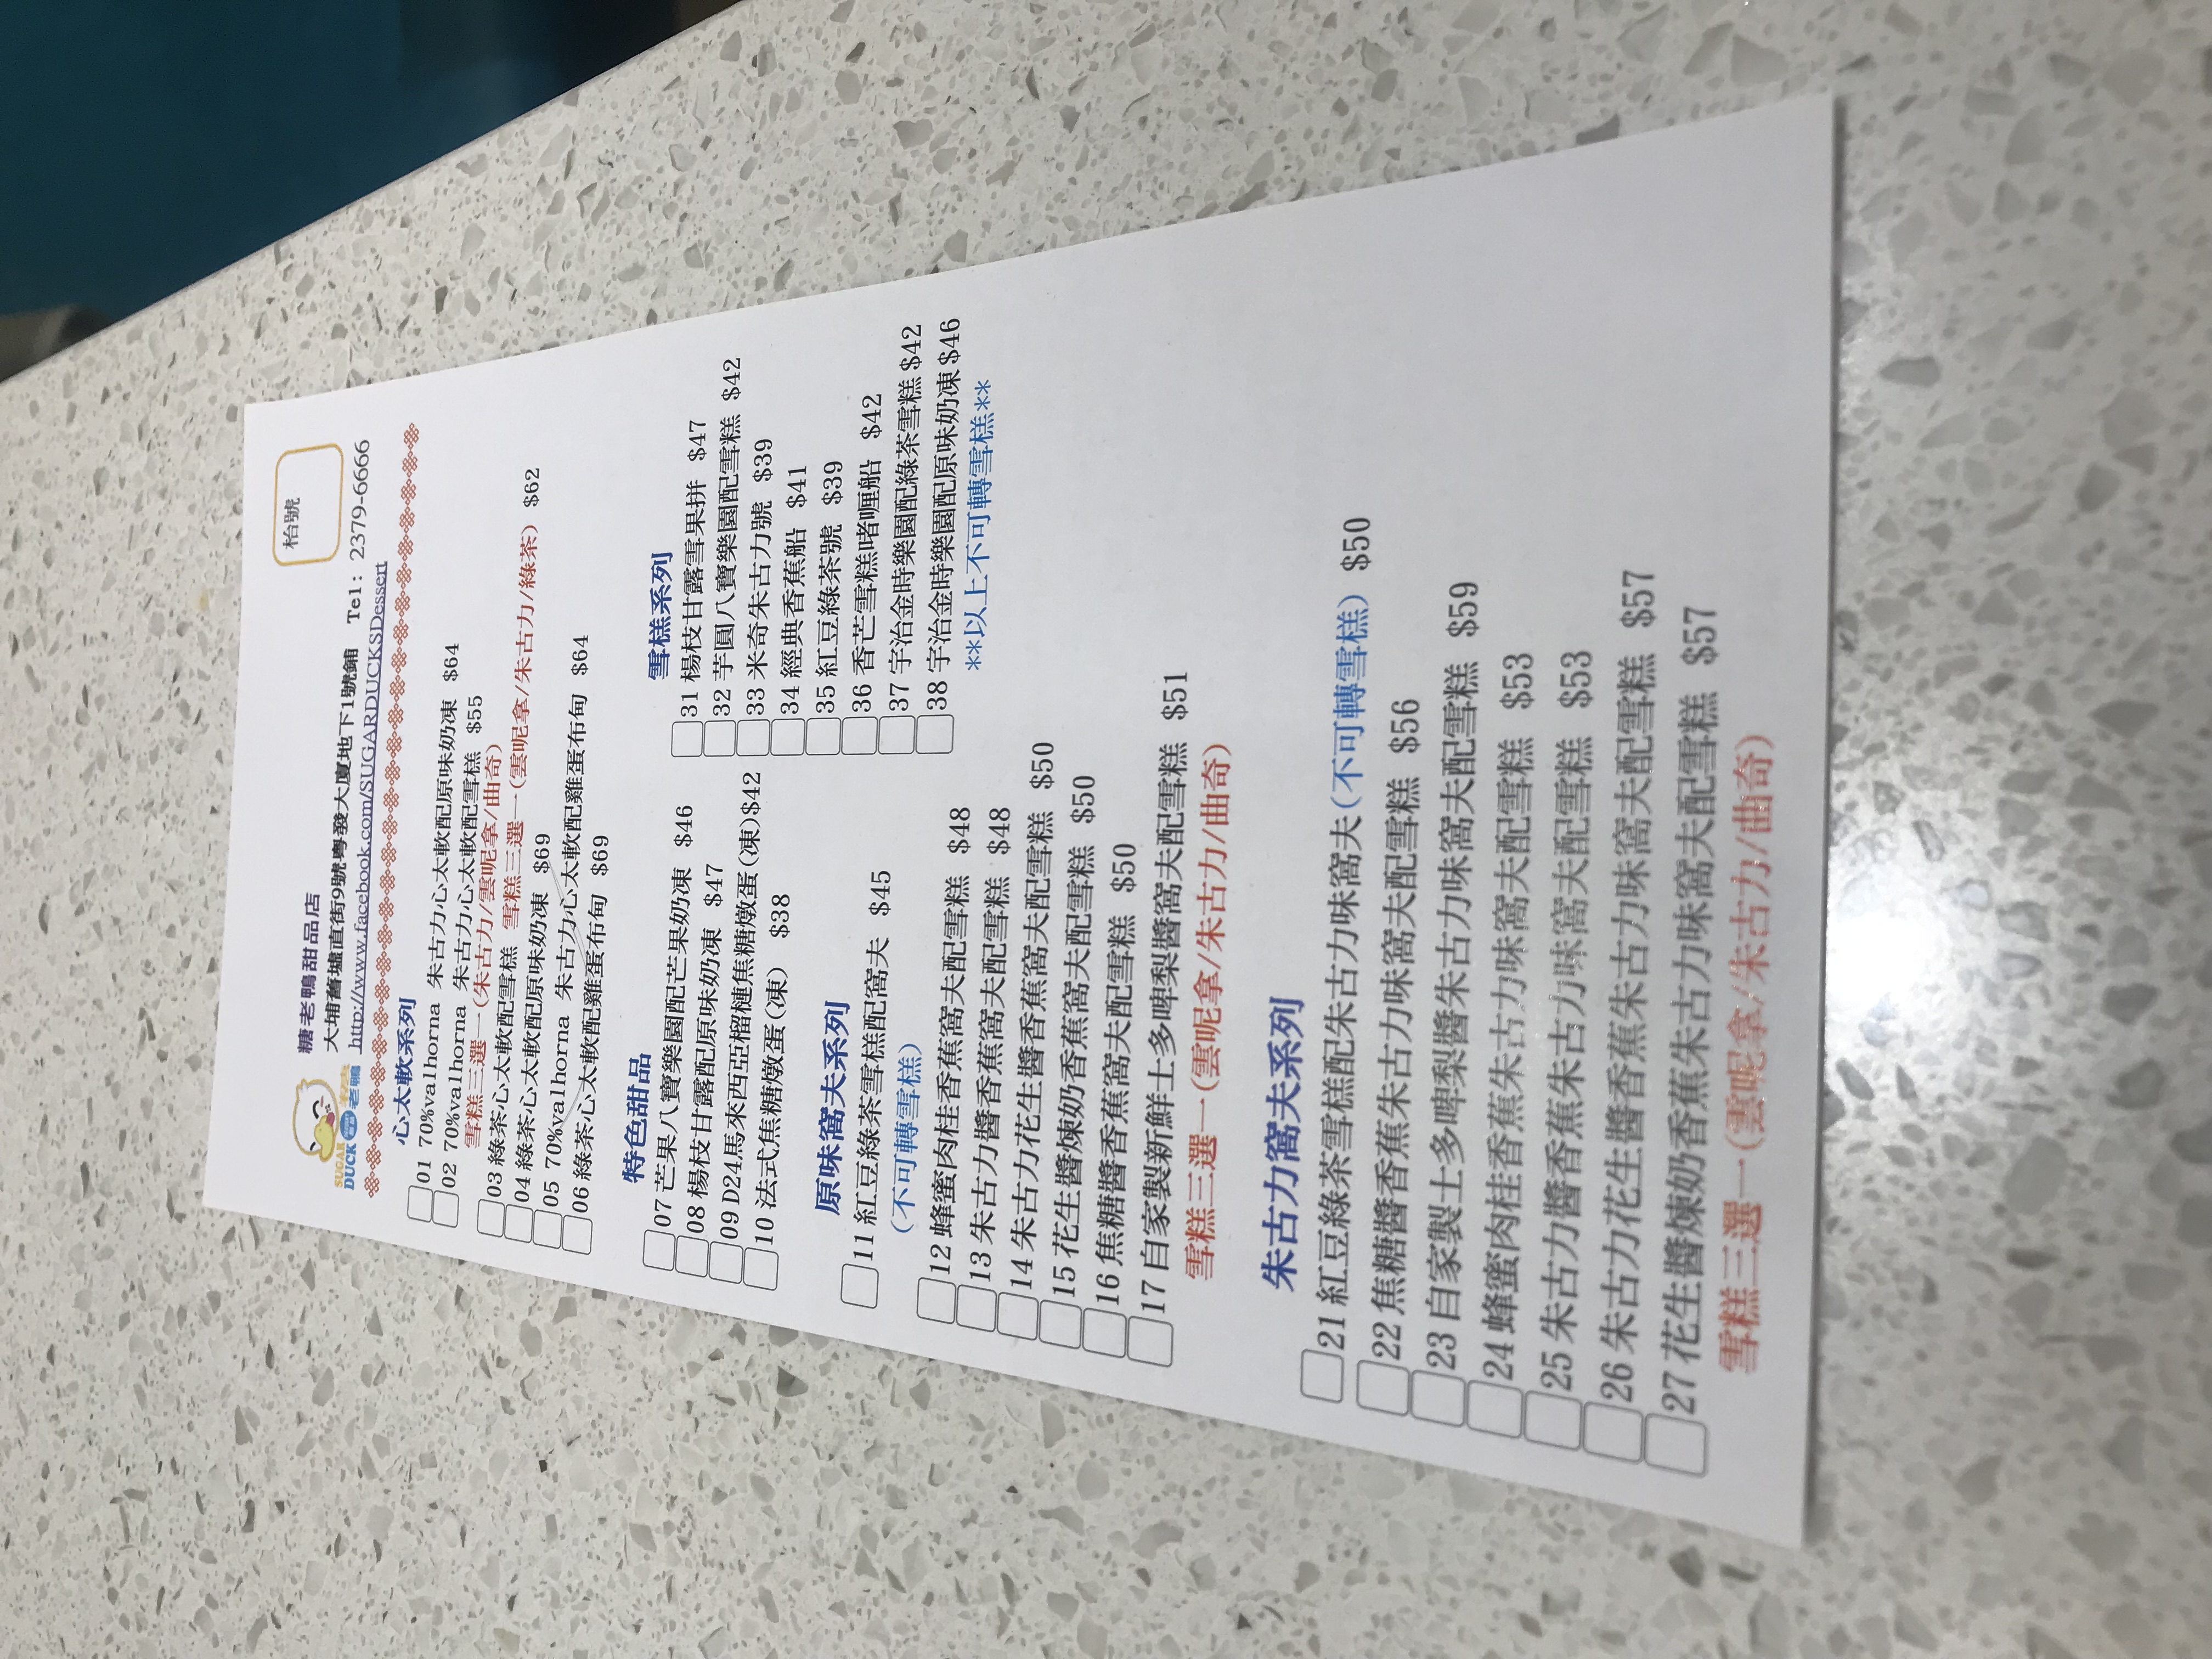 SUGAR
DUCK
老鴨
糖老鴨甜品店
枱號
大埔舊墟直街9號粵發大廈地下1號鋪 Tel: 2379-6666
http://www.facebook.com/SUGARDUCKSDessert
心太軟系列
01 70%valhorna 朱古力心太軟配原味奶凍 $64
02 70%valhorna 朱古力心太軟配雪糕 $55
雪糕三選一(朱古力/雲呢拿/曲奇)
03 綠茶心太軟配雪糕 雪糕三選一(雲呢拿/朱古力/綠茶) $62
04 綠茶心太軟配原味奶凍 $69
05 70%valhorna 朱古力心太軟配雞蛋布甸 $64
06 綠茶心太軟配雞蛋布甸 $69
特色甜品
07 芒果八寶樂園配芒果奶凍 $46
08 楊枝甘露配原味奶凍 $47
09 D24馬來西亞榴槤焦糖燉蛋(凍)$42
10 法式焦糖燉蛋(凍) $38
雪糕系列
31 楊枝甘露雪果拼 $47
32 芋圓八寶樂園配雪糕 $42
33 米奇朱古力號 $39
34 經典香蕉船 $41
35 紅豆綠茶號 $39
36 香芒雪糕啫喱船 $42
37 宇治金時樂園配綠茶雪糕 $42
38 宇治金時樂園配原味奶凍 $46
**以上不可轉雪糕**
原味窩夫系列
11 紅豆綠茶雪糕配窩夫 $45
(不可轉雪糕)
12 蜂蜜肉桂香蕉窩夫配雪糕 $48
13 朱古力醬香蕉窩夫配雪糕 $48
14 朱古力花生醬香蕉窩夫配雪糕 $50
15 花生醬煉奶香蕉窩夫配雪糕 $50
16 焦糖醬香蕉窩夫配雪糕 $50
17 自家製新鮮士多啤梨醬窩夫配雪糕 $51
雪糕三選一(雲呢拿/朱古力/曲奇)
朱古力窩夫系列
21 紅豆綠茶雪糕配朱古力味窩夫(不可轉雪糕) $50
22 焦糖醬香蕉朱古力味窩夫配雪糕 $56
23 自家製士多啤梨醬朱古力味窩夫配雪糕 $59
24 蜂蜜肉桂香蕉朱古力味窩夫配雪糕 $53
25 朱古力醬香蕉朱古力味窩夫配雪糕 $53
26 朱古力花生醬香蕉朱古力味窩夫配雪糕 $57
27 花生醬煉奶香蕉朱古力味窩夫配雪糕 $57
雪糕三選一(雲呢拿/朱古力/曲奇)